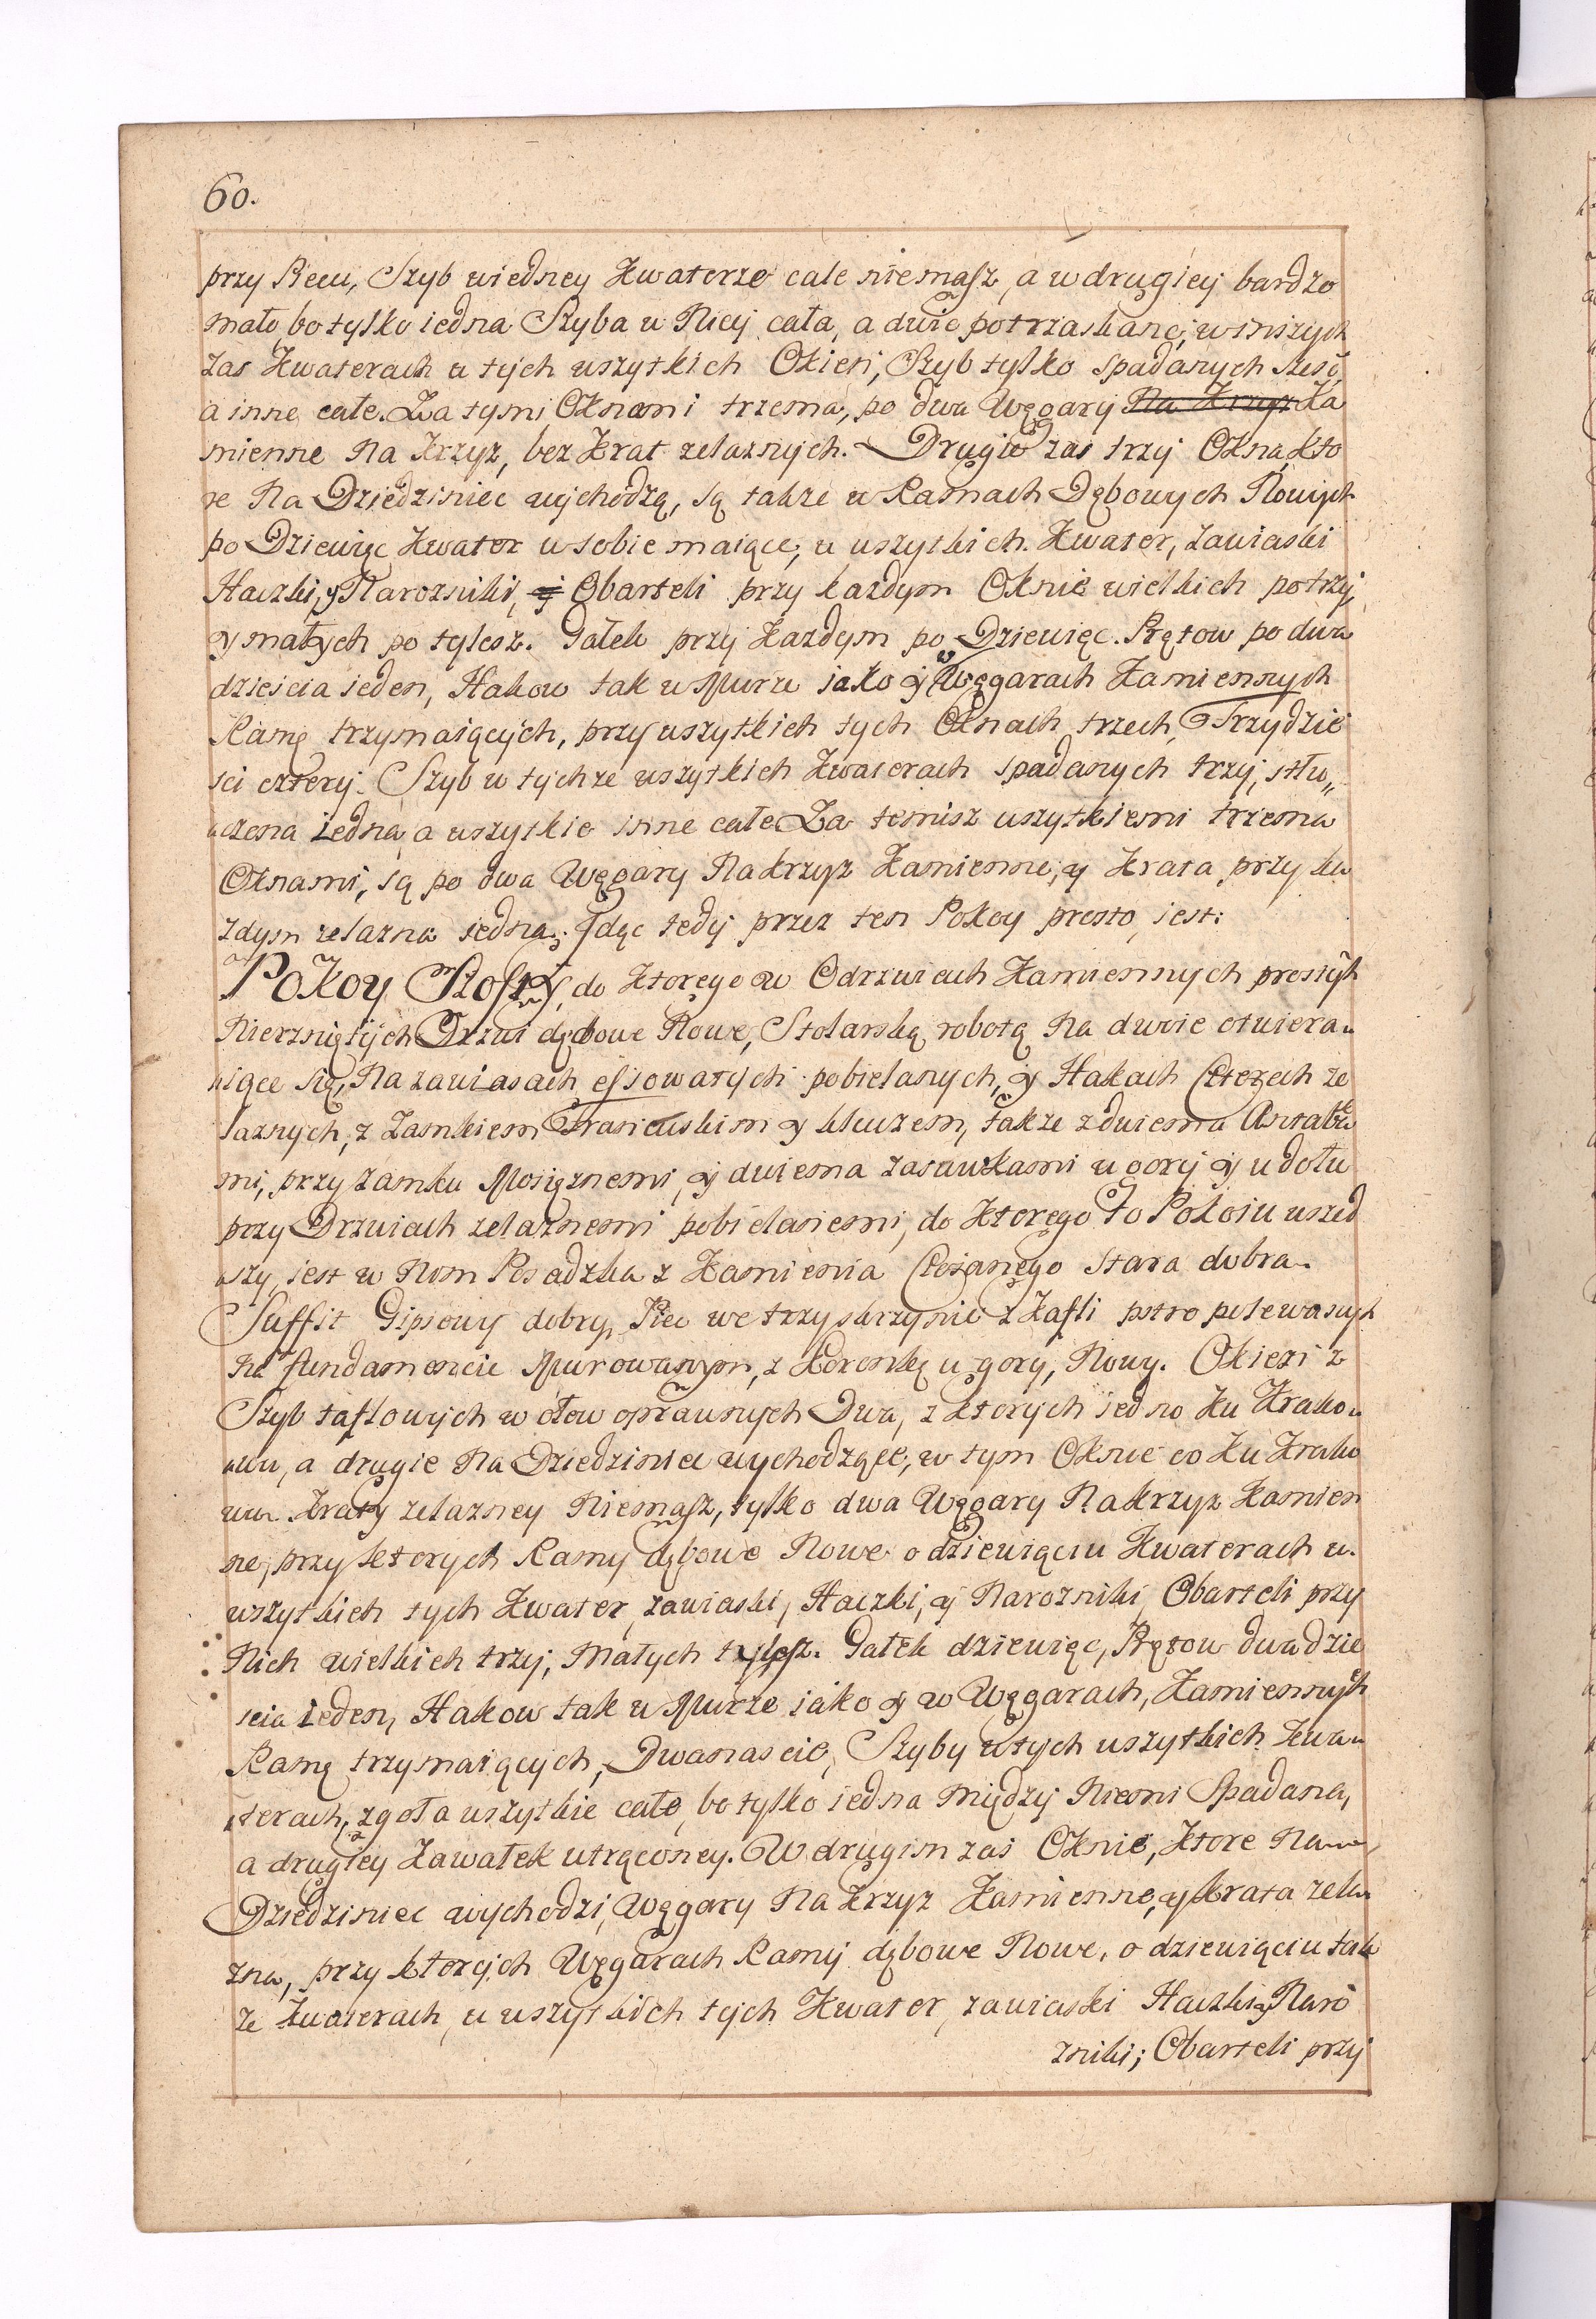 60.
przy Piecu, Szyb wiedney Kwaterze cale niemasz, a w drugiey bardzo
mało, bo tylko iedna Szyba w Niey cała, a dwie potrzaskane, w inszych
zas Kwaterach u tych wszytkich Okien, Szyb tylko spadanych szesc,
a inne całe. Za tymi Oknami trzema, po dwa Węgary Na Krzyz Ka
mienne Na Krzyz, bez Krat zelaznych. Drugie zas trzy Okna, kto
re Na Dziedziniec wychodzą, są takze w Ramach Dębowych Nowych
po Dziewięc Kwater w sobie maiące, u wszytkich Kwater, zawiaski
Haczki, y Narozniki, y Obarteli przy kazdym Oknie wielkich po trzy,
y małych po tylesz. Gałek przy Kazdym po Dziewięc. Prętow po dwa
dziescia ieden, Hakow tak w Murze jako y w Węgarach Kamiennych
Ramę trzymaiących, przy wszytkich tych Oknach trzech, Trzydzie
sci cztery. Szyb w tychze wszytkich Kwaterach spadanych trzy, stłu„
„czona iedna, a wszytkie inne całe. Za temisz wszytkiemi trzema
Oknami, są po dwa Węgary Na krzyz Kamienne, y Krata przy ka
zdym zelazna iedna. Idąc tedy przez ten Pokoy prosto, iest:
Pokoy Szosty, do Ktorego w Odrzwiach Kamiennych prostych
Nierzniętych Drzwi dębowe Nowe, Stolarską robotą Na dwoie otwiera„
„iące się, Na zawiasach essowatych pobielanych, y Hakach Czterech ze
laznych, z Zamkiem Francuskim y kluczem, takze z dwiema Antaba
mi, przy zamku Mosięznemi, y dwiema zasuwkami u gory y u dołu
przy Drzwiach zelaznemi pobielanemi, do Ktorego to Pokoiu wszed
„szy, iest w Nim Posadzka z Kamienia Ciosanego stara dobra.
Suffit Gipsowy dobry, Piec we trzy skrzynie z Kafli pstro polewanych
na fundamencie Murowanym, z Koronką u gory, Nowy. Okien z
Szyb taflowych w ołow oprawnych Dwa, z ktorych iedno Ku Krako„
„wu, a drugie Na Dziedziniec wychodzące, w tym Oknie co Ku Krako
wu Kraty zelazney Niemasz, tylko dwa Węgary Na krzyz Kamien
ne, przy ktorych Ramy dębowe Nowe o dziewięciu Kwaterach u
wszytkich tych Kwater, zawiaski, Haczki, y Narozniki, Obarteli przy
Nich wielkich trzy, Małych tylesz. Gałek dziewięc, Prętow dwadzie
scia ieden, Hakow tak w Murze iako y w Węgarach, Kamiennych
Ramę trzymaiących, Dwanascie, Szyby w tych wszytkich Kwa„
„terach, zgoła wszytkie całe, bo tylko iedna między Niemi Spadana,
a drugiey Kawałek utrąconey. W drugim zas Oknie, Ktore Na
Dziedziniec wychodzi, Węgary Na Krzyz Kamienne, y krata zela
zna, przy ktorych Węgarach Ramy dębowe Nowe, o dziewięciu tak
ze Kwaterach, u wszytkich tych Kwater, zawiaski Haczki, y Naro
zniki; Obarteli przy